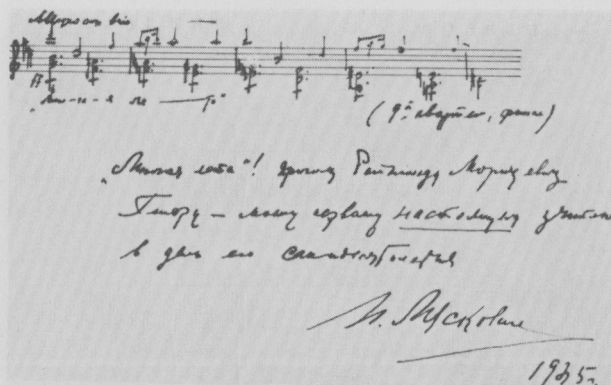 Allegro con brio
„Мно-га-я ле — та“
(9й квартет, финал)
„Многая лета“! дорогому Рейнгольду Морицевичу
Глиэру — моему первому настоящему учителю
в день его семидесятилетия
Н. Мясковский
1945г.